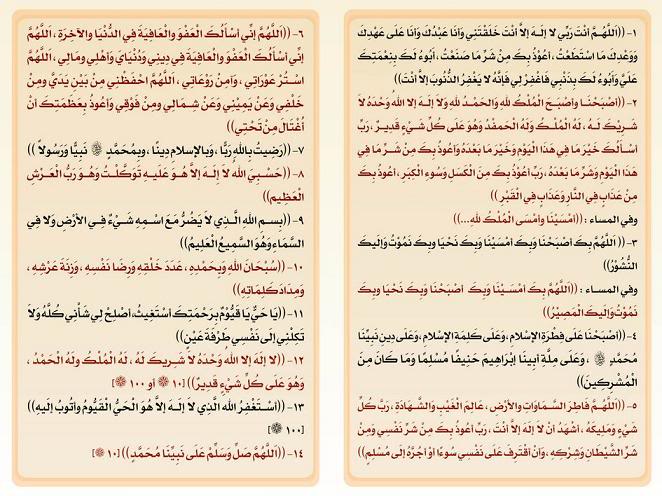 ١- ((اَللَّهُمَّ أَنْتَ رَبِّي لَا إِلَهَ إِلَّا أَنْتَ خَلَقْتَنِي وَأَنَا عَبْدُكَ وَأَنَا عَلَى عَهْدِكَ
وَوَعْدِكَ مَا اسْتَطَعْتُ، أَعُوذُ بِكَ مِنْ شَرِّ مَا صَنَعْتُ، أَبُوءُ لَكَ بِنِعْمَتِكَ
عَلَيَّ وَأَبُوءُ لَكَ بِذَنْبِي فَاغْفِرْ لِي فَإِنَّهُ لَا يَغْفِرُ الذُّنُوبَ إِلَّا أَنْتَ))
٢- ((أَصْبَحْنَا وَأَصْبَحَ الْمُلْكُ لِلَّهِ وَالْحَمْدُ لِلَّهِ وَلَا إِلَهَ إِلَّا اللهُ وَحْدَهُ لَا
شَرِيكَ لَهُ، لَهُ الْمُلْكُ وَلَهُ الْحَمْدُ وَهُوَ عَلَى كُلِّ شَيْءٍ قَدِيرٌ، رَبِّ
أَسْأَلُكَ خَيْرَ مَا فِي هَذَا الْيَوْمِ وَخَيْرَ مَا بَعْدَهُ وَأَعُوذُ بِكَ مِنْ شَرِّ مَا فِي
هَذَا الْيَوْمِ وَشَرِّ مَا بَعْدَهُ، رَبِّ أَعُوذُ بِكَ مِنَ الْكَسَلِ وَسُوءِ الْكِبَرِ، أَعُوذُ بِكَ
مِنْ عَذَابٍ فِي النَّارِ وَعَذَابٍ فِي الْقَبْرِ))
وفي المساء : ((أَمْسَيْنَا وَأَمْسَى الْمُلْكُ لِلَّهِ...))
٣- ((اَللَّهُمَّ بِكَ أَصْبَحْنَا وَبِكَ أَمْسَيْنَا وَبِكَ نَحْيَا وَبِكَ نَمُوْتُ وَإِلَيْكَ
النُّشُوْرُ))
وفي المساء : ((اَللَّهُمَّ بِكَ أَمْسَيْنَا وَبِكَ أَصْبَحْنَا وَبِكَ نَحْيَا وَبِكَ
نَمُوْتُ وَإِلَيْكَ الْمَصِيْرُ))
٤- ((أَصْبَحْنَا عَلَى فِطْرَةِ الإِسْلَامِ، وَعَلَى كَلِمَةِ الإِسْلَامِ، وَعَلَى دِينِ نَبِيِّنَا
مُحَمَّدٍ ﷺ، وَعَلَى مِلَّةِ أَبِينَا إِبْرَاهِيمَ حَنِيفًا مُسْلِمًا وَمَا كَانَ مِنَ
الْمُشْرِكِينَ))
٥- ((اَللَّهُمَّ فَاطِرَ السَّمَاوَاتِ وَالأَرْضِ، عَالِمَ الْغَيْبِ وَالشَّهَادَةِ، رَبَّ كُلِّ
شَيْءٍ وَمَلِيكَهُ، أَشْهَدُ أَنْ لَا إِلَهَ إِلَّا أَنْتَ، رَبِّ أَعُوذُ بِكَ مِنْ شَرِّ نَفْسِي وَمِنْ
شَرِّ الشَّيْطَانِ وَشِرْكِهِ، وَأَنْ أَقْتَرِفَ عَلَى نَفْسِي سُوءًا أَوْ أَجُرَّهُ إِلَى مُسْلِمٍ))
٦- ((اَللَّهُمَّ إِنِّي أَسْأَلُكَ الْعَفْوَ وَالْعَافِيَةَ فِي الدُّنْيَا وَالآخِرَةِ، اللَّهُمَّ
إِنِّي أَسْأَلُكَ الْعَفْوَ وَالْعَافِيَةَ فِي دِينِي وَدُنْيَايَ وَأَهْلِي وَمَالِي، اللَّهُمَّ
اسْتُرْ عَوْرَاتِي، وَآمِنْ رَوْعَاتِي، اَللَّهُمَّ احْفَظْنِي مِنْ بَيْنِ يَدَيَّ وَمِنْ
خَلْفِي وَعَنْ يَمِيْنِي وَعَنْ شِمَالِي وَمِنْ فَوْقِي وَأَعُوذُ بِعَظَمَتِكَ أَنْ
أُغْتَالَ مِنْ تَحْتِي))
٧- ((رَضِيتُ بِاللهِ رَبًّا، وَبِالإِسْلَامِ دِينًا، وَبِمُحَمَّدٍ ﷺ نَبِيًّا وَرَسُولاً))
٨- ((حَسْبِيَ اللهُ لَا إِلَهَ إِلَّا هُوَ عَلَيهِ تَوَكَّلْتُ وَهُوَ رَبُّ الْعَرْشِ
الْعَظِيمِ))
٩- ((بِسمِ اللهِ الَّذِي لَا يَضُرُّ مَعَ اسْمِهِ شَيْءٌ فِي الأَرْضِ وَلَا فِي
السَّمَاءِ وَهُوَ السَّمِيعُ الْعَلِيمُ))
١٠- ((سُبْحَانَ اللهِ وَبِحَمْدِهِ، عَدَدَ خَلْقِهِ وَرِضَا نَفْسِهِ، وَزِنَةَ عَرْشِهِ،
وَمِدَادَ كَلِمَاتِهِ))
١١- ((يَا حَيُّ يَا قَيُّوْمُ بِرَحْمَتِكَ أَسْتَغِيثُ، أَصْلِحْ لِي شَأْنِي كُلَّهُ وَلَا
تَكِلْنِي إِلَى نَفْسِي طَرْفَةَ عَيْنٍ))
١٢- ((لَا إِلَهَ إِلَّا اللهُ وَحْدَهُ لَا شَرِيكَ لَهُ، لَهُ الْمُلْكُ وَلَهُ الْحَمْدُ،
وَهُوَ عَلَى كُلِّ شَيْءٍ قَدِيرٌ)) [١٠ أو ١٠٠]
١٣- ((أَسْتَغْفِرُ اللهَ الَّذِي لَا إِلَهَ إِلَّا هُوَ الْحَيُّ الْقَيُّومُ وَأَتُوبُ إِلَيهِ))
[١٠٠]
١٤- ((اَللَّهُمَّ صَلِّ وَسَلِّمْ عَلَى نَبِيِّنَا مُحَمَّدٍ)) [١٠]